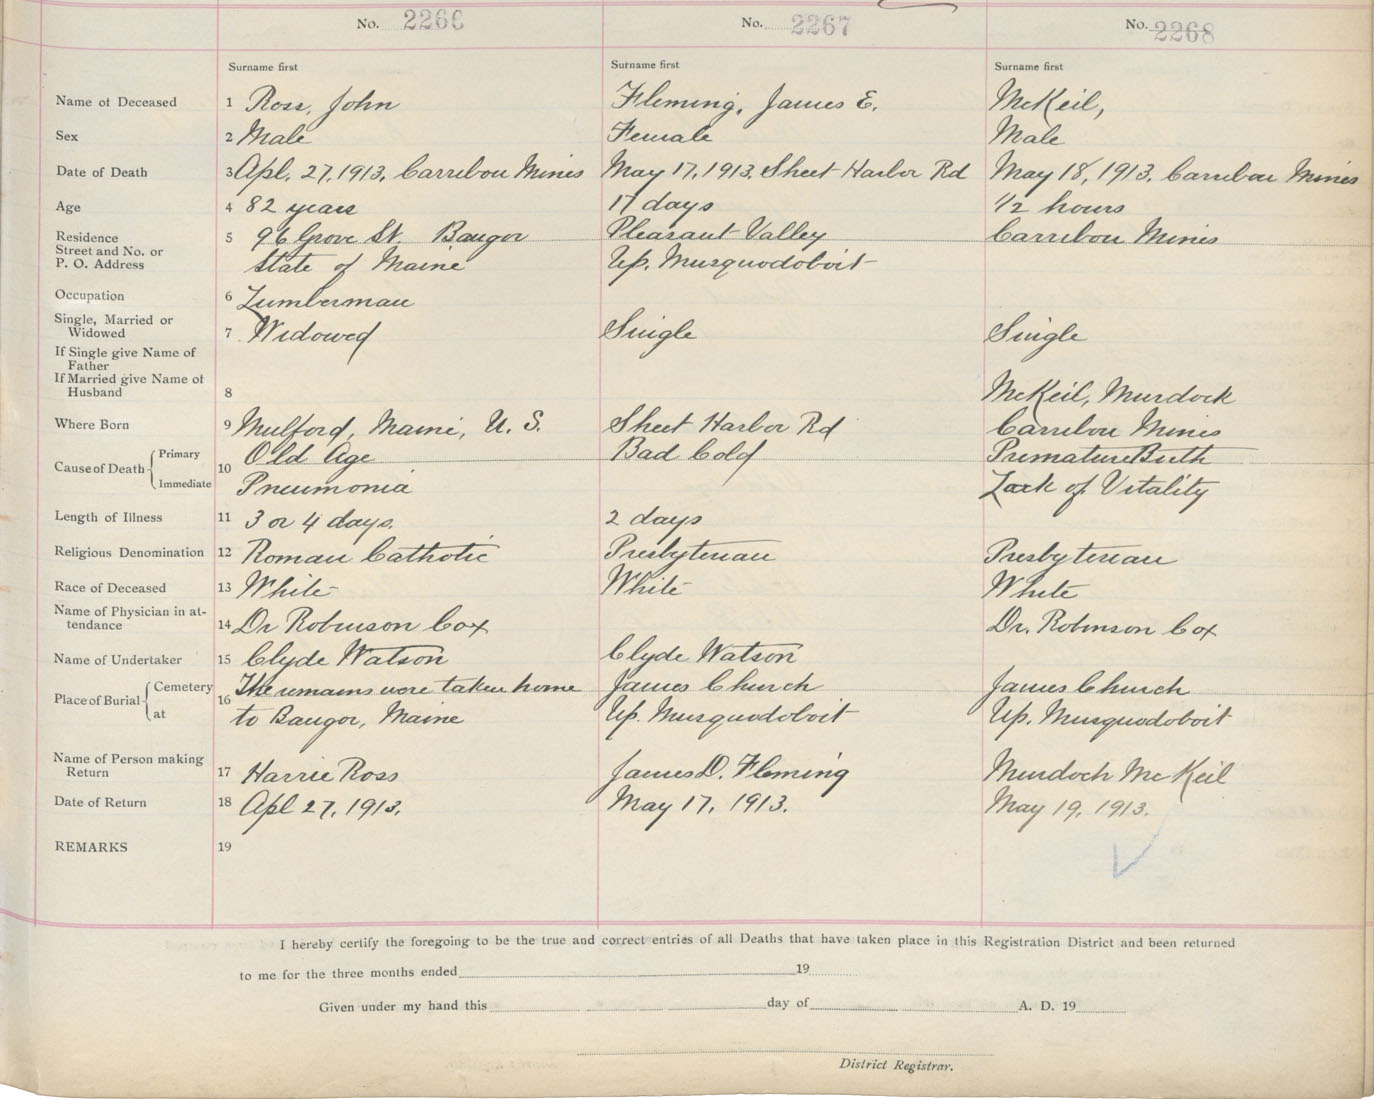 No. 2266 No. 2267 No. 2268
Surname first Surname first Surname first
Name of Deceased 1 Ross, John Fleming, James E. McKeil,
Sex 2 Male Female Male
Date of Death 3 Apl. 27, 1913, Carribou Mines May 17, 1913, Sheet Harbor Rd May 18, 1913, Carribou Mines
Age 4 82 years 17 days 1/2 hours
Residence 5 96 Grove St. Bangor Pleasant Valley Carribou Mines
Street and No. or
P. O. Address State of Maine Up. Musquodoboit
Occupation 6 Lumberman
Single, Married or
Widowed 7 Widowed Single Single
If Single give Name of
Father
If Married give Name of
Husband 8 McKeil, Murdock
Where Born 9 Mulford, Maine, U. S. Sheet Harbor Rd Carribou Mines
Cause of Death Primary 10 Old Age Bad Cold Premature Birth
Immediate Pneumonia Lack of Vitality
Length of Illness 11 3 or 4 days. 2 days
Religious Denomination 12 Roman Catholic Presbyterian Presbyterian
Race of Deceased 13 White White White
Name of Physician in at-
tendance 14 Dr Robinson Cox Dr. Robinson Cox
Name of Undertaker 15 Clyde Watson Clyde Watson
Place of Burial Cemetery 16 The remains were taken home James Church James Church
at to Bangor, Maine Up. Musquodoboit Up. Musquodoboit
Name of Person making
Return 17 Harrie Ross James D. Fleming Murdoch McKeil
Date of Return 18 Apl 27, 1913. May 17, 1913. May 19, 1913.
REMARKS 19
I hereby certify the foregoing to be the true and correct entries of all Deaths that have taken place in this Registration District and been returned
to me for the three months ended 19
Given under my hand this day of A. D. 19
District Registrar.